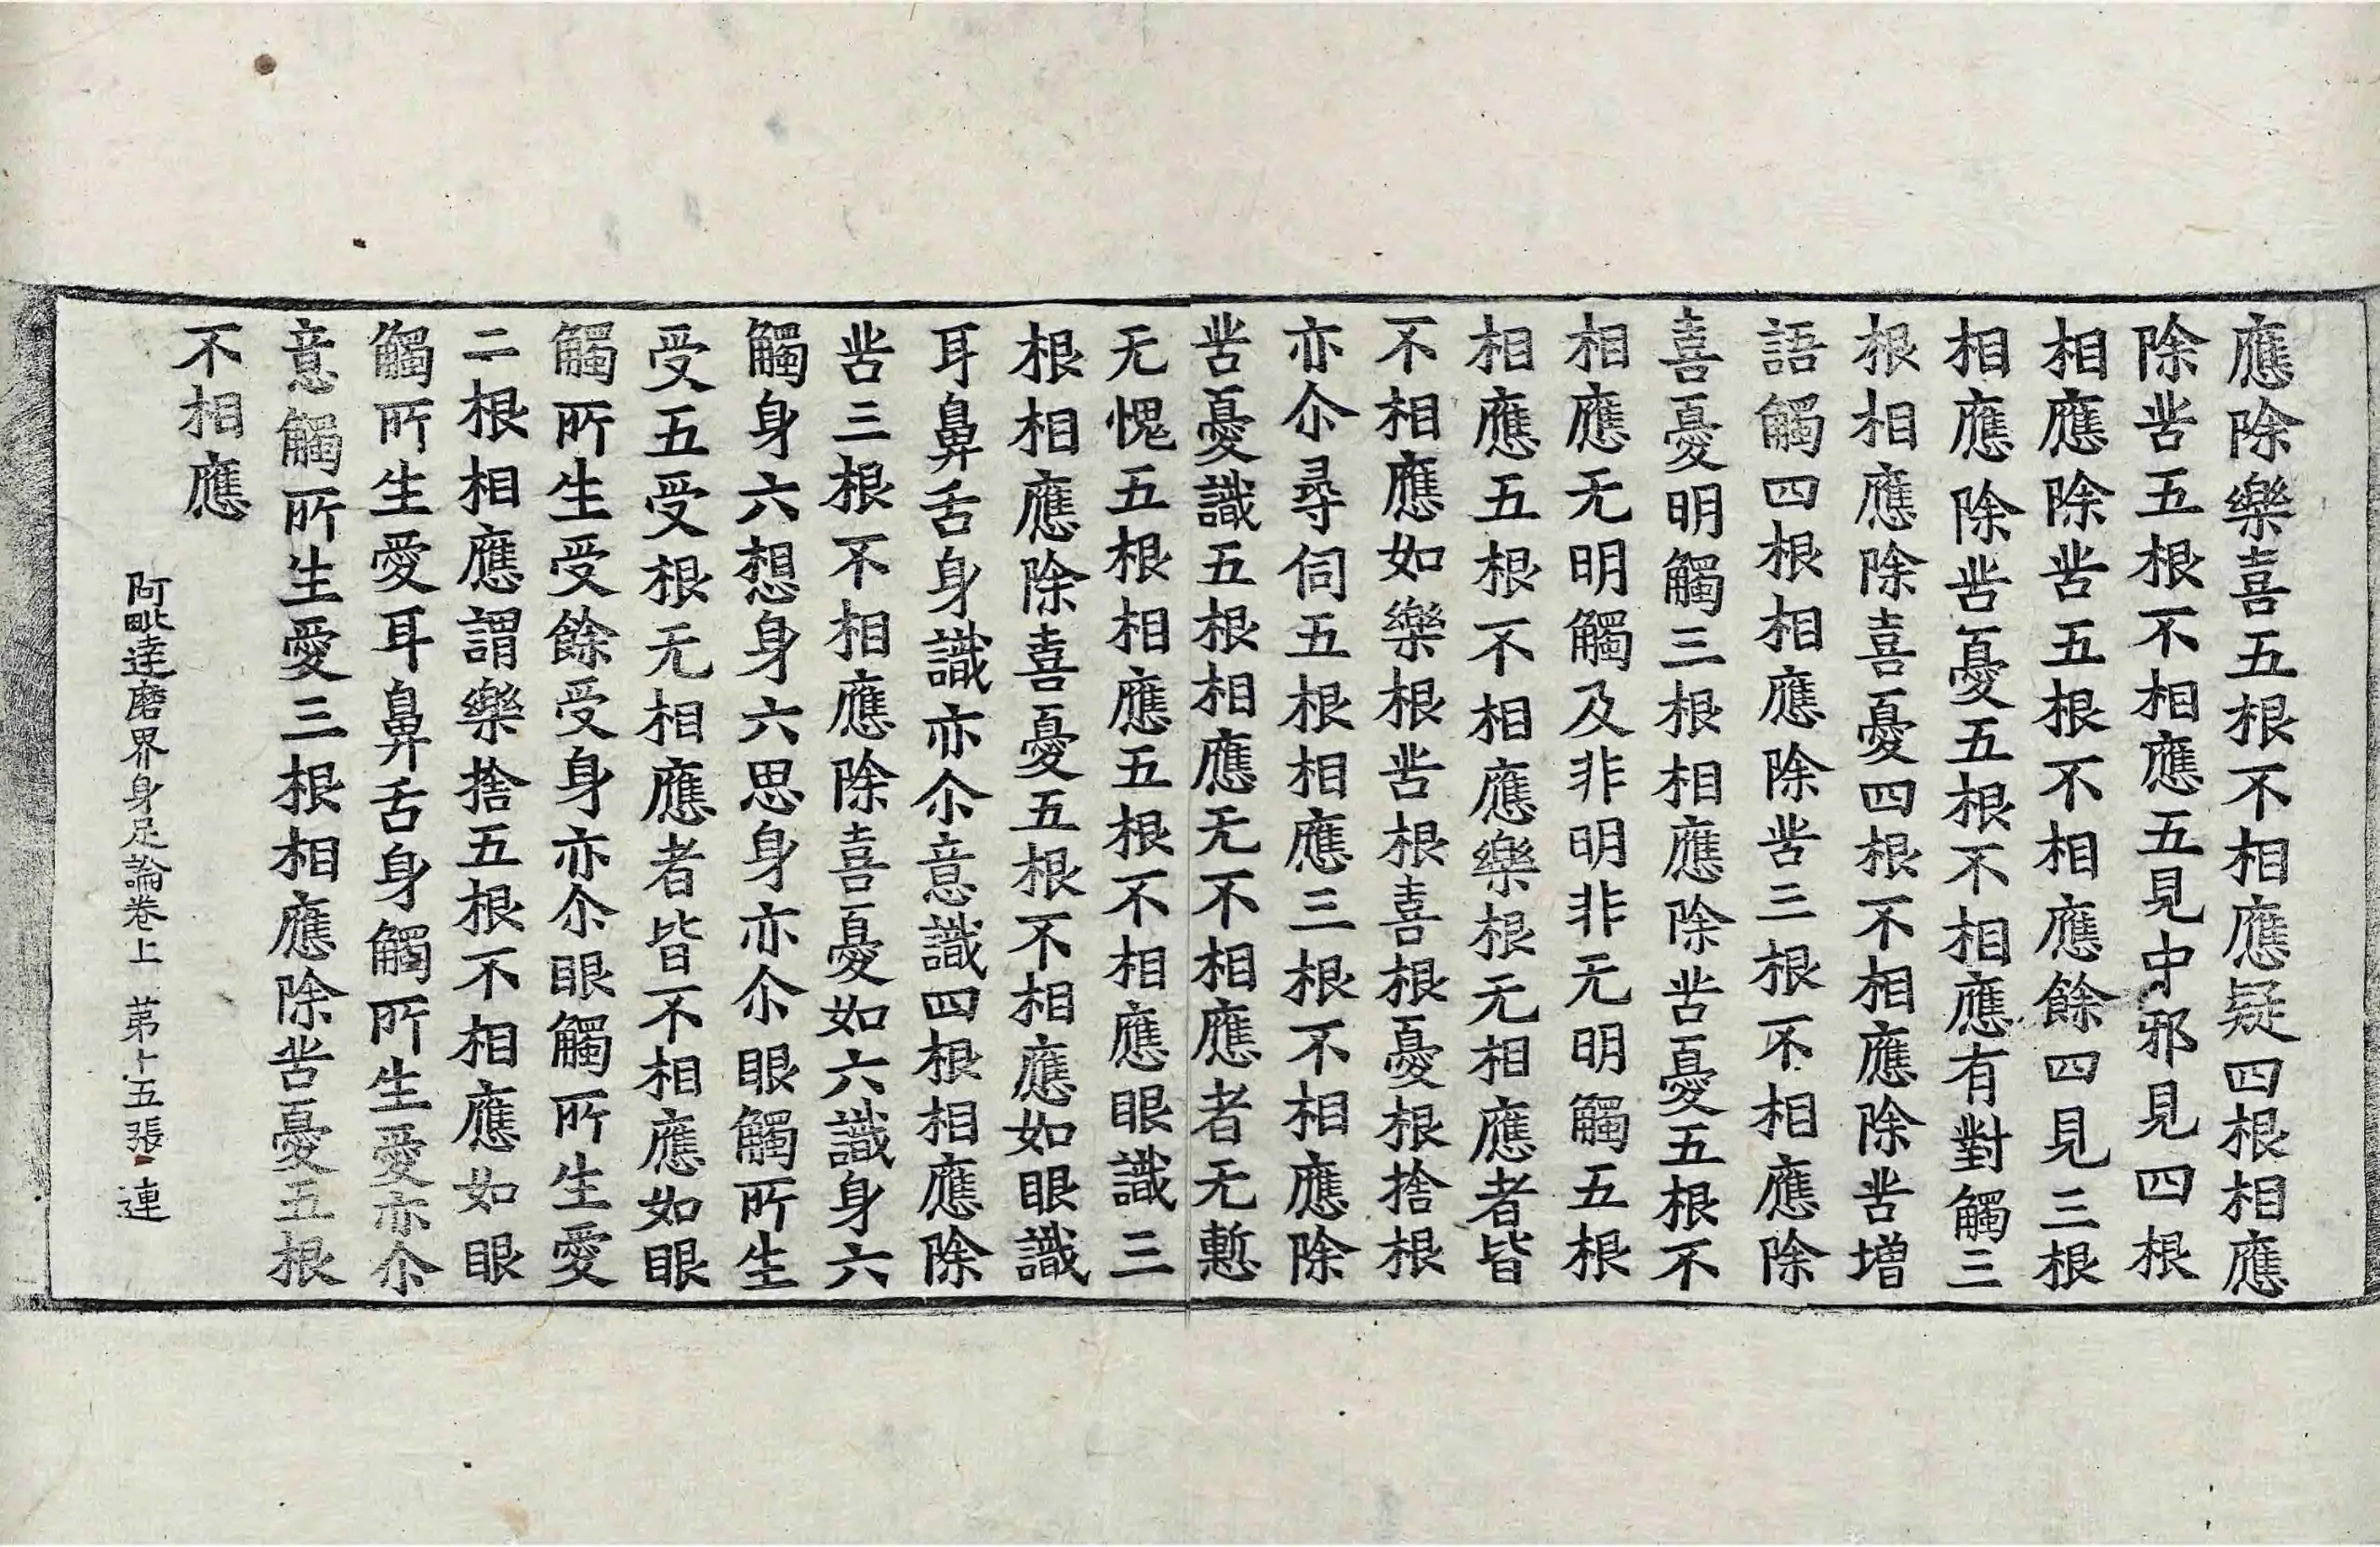 應除樂喜五根不相應疑四根相應
除苦五根不相應五見中邪見四根
相應除苦五根不相應餘四見三根
相應除苦憂五根不相應有對觸三
根相應除喜憂四根不相應除苦增
語觸四根相應除苦三根不相應除
喜憂明觸三根相應除苦憂五根不
相應无明觸及非明非无明觸五根
相應五根不相應樂根无相應者皆
不相應如樂根苦根喜根憂根捨根
亦尒尋伺五根相應三根不相應除
苦憂識五根相應无不相應者无慙
无愧五根相應五根不相應眼識三
根相應除喜憂五根不相應如眼識
耳鼻舌身識亦尒意識四根相應除
苦三根不相應除喜憂如六識身六
觸身六想身六思身亦尒眼觸所生
受五受根无相應者皆不相應如眼
觸所生受餘受身亦尒眼觸所生愛
二根相應謂樂捨五根不相應如眼
觸所生愛耳鼻舌身觸所生愛亦尒
意觸所生愛三根相應除苦憂五根
不相應
阿毗達磨界身足論卷上 苐十五張 連